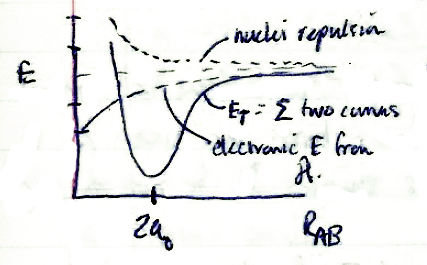 nuclei repulsion
E
E_T = Σ two curves
electronic E from
Ĥ.
2a₀
R_AB